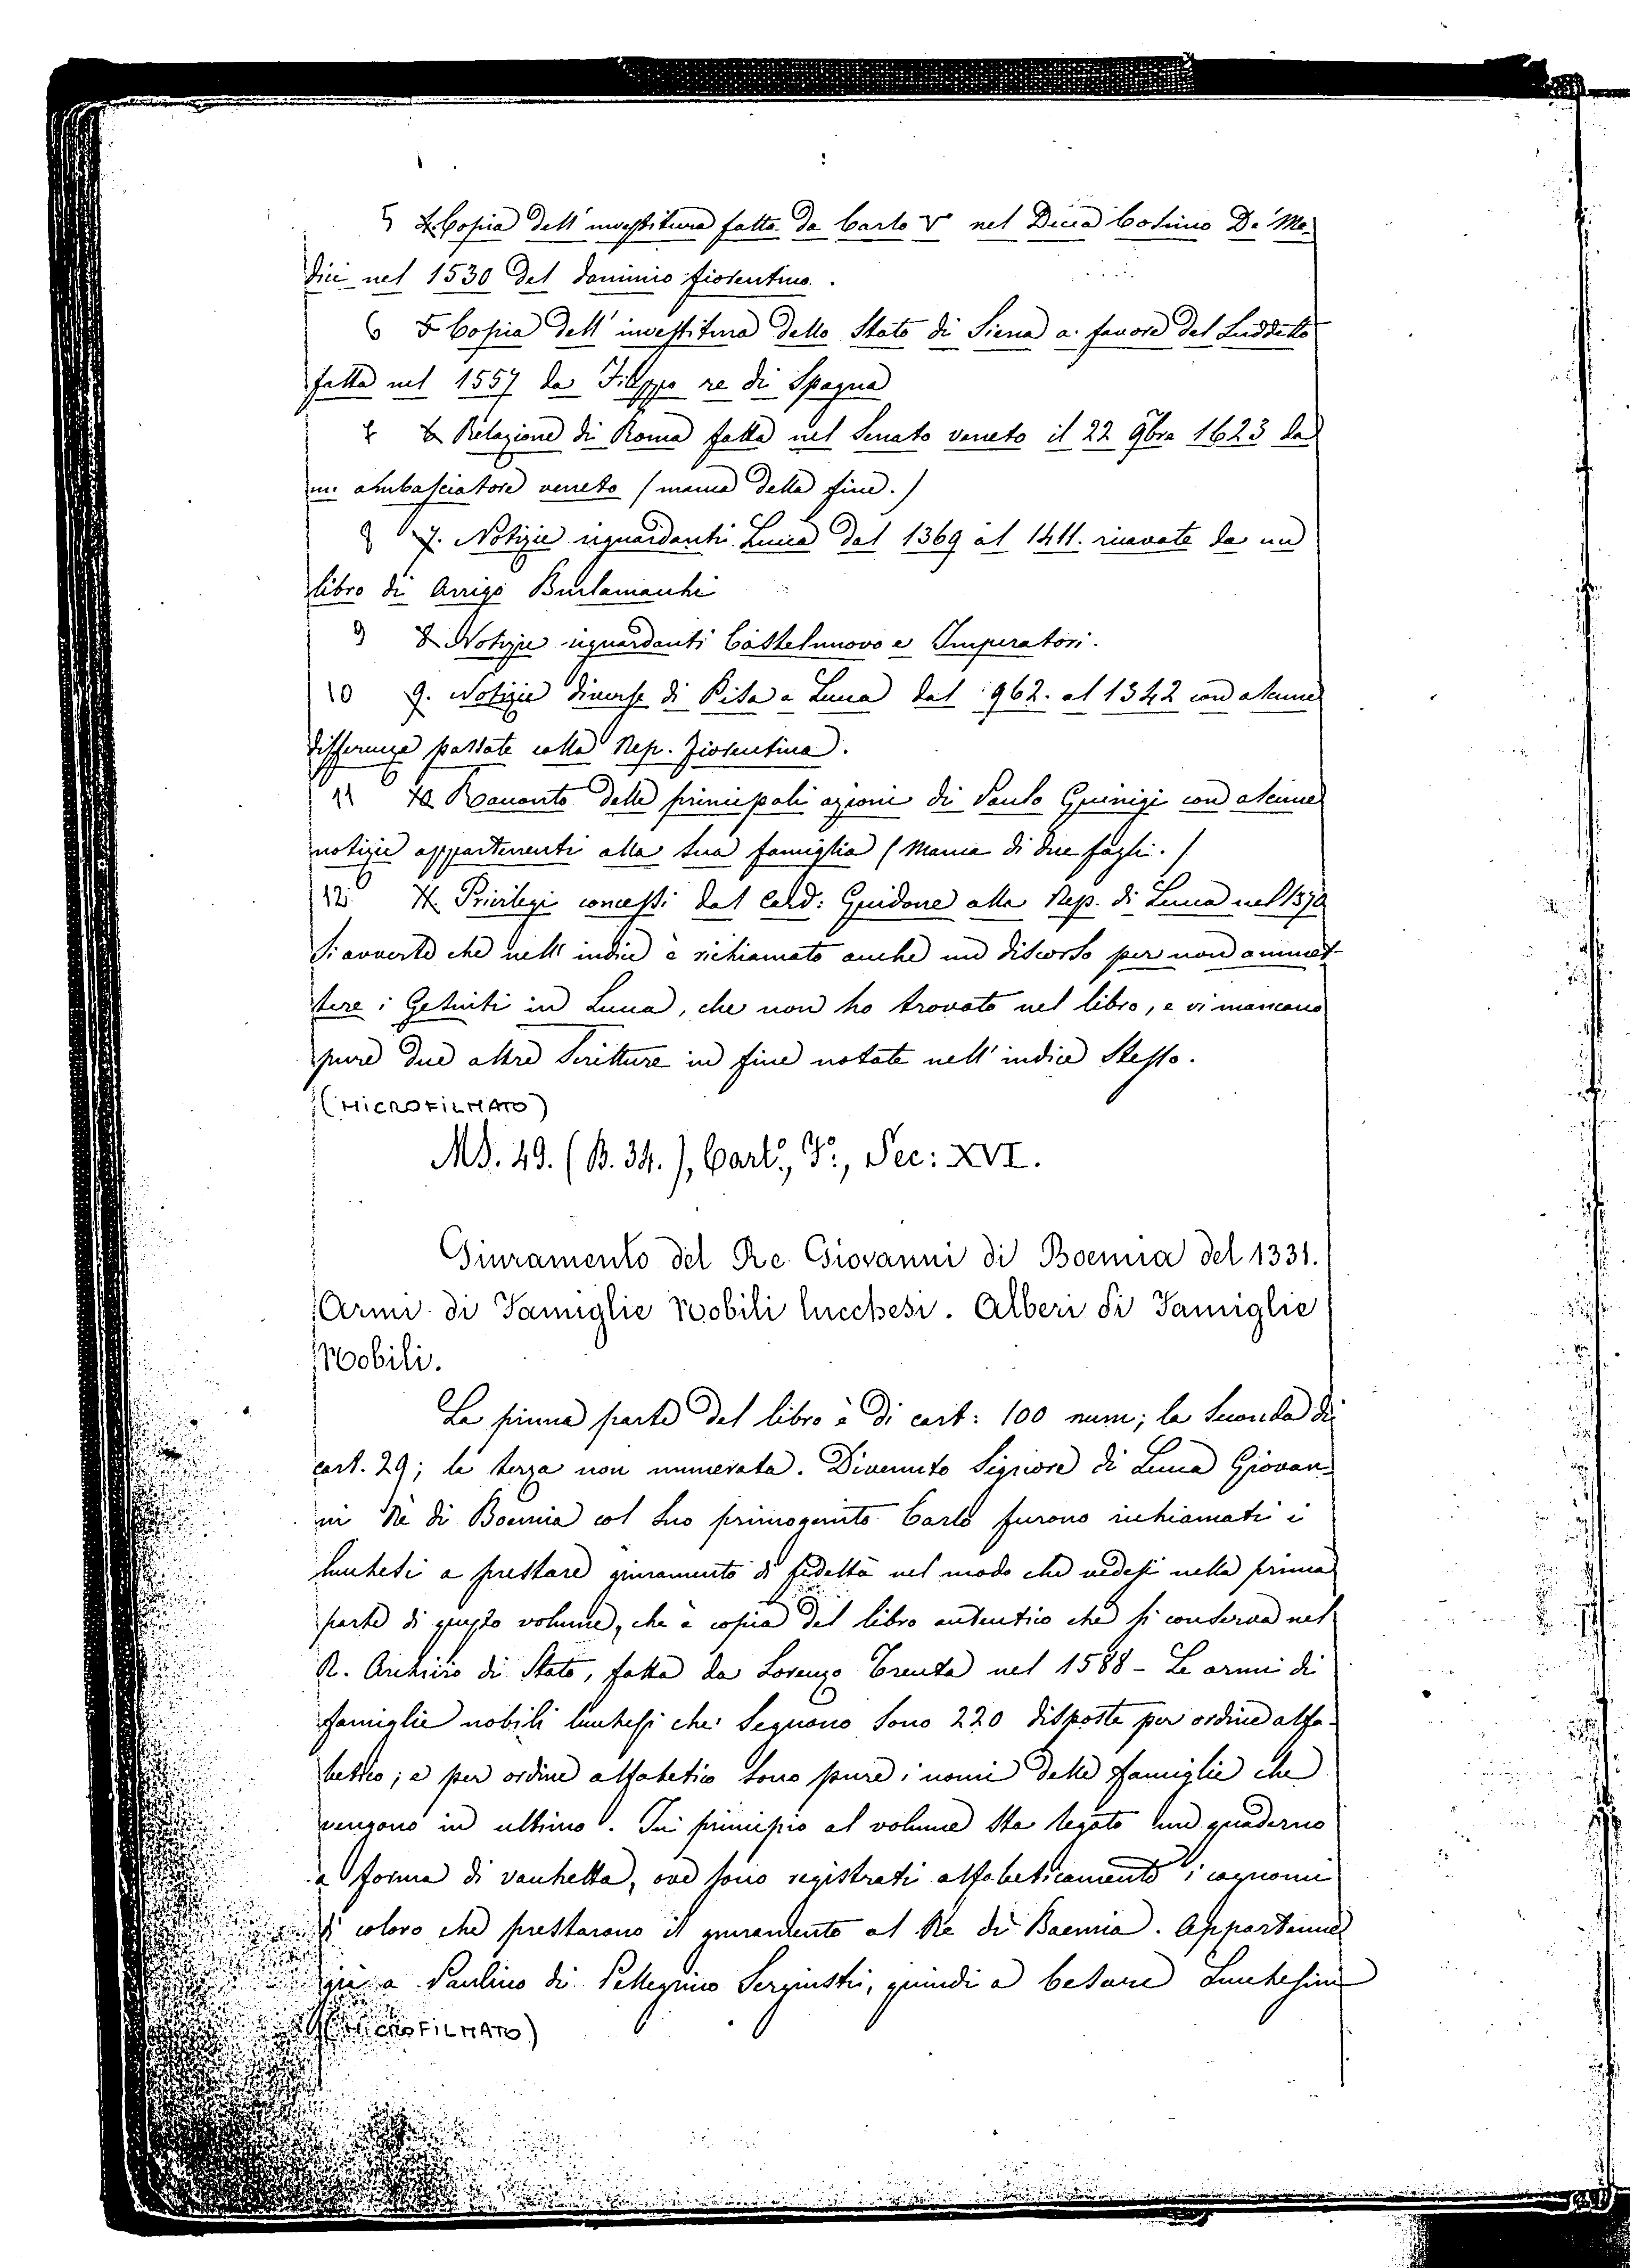 5 4. Copia dell' investitura fatta da Carlo V nel Duca Cosimo De' Me-
dici nel 1530 del dominio fiorentino.
6 5 Copia dell' investitura dello Stato di Siena a favore del suddetto
fatta nel 1557 da Filippo re di Spagna
7 6 Relazione di Roma fatta nel Senato veneto il 22 9bre 1623 da
un ambasciatore veneto (manca della fine.)
8 7. Notizie riguardanti Lucca dal 1369 al 1411. ricavate da un
libro di Arrigo Burlamacchi
9 8 Notizie riguardanti Castelnuovo e Imperatori.
10 9. Notizie diverse di Pisa e Lucca dal 962. al 1342 con alcune
differenze passate colla Rep. Fiorentina.
11 10 Racconto delle principali azioni di Paulo Guinigi con alcune
notizie appartenenti alla sua famiglia (Manca di due fogli.)
12. 11. Privilegi concessi dal Card: Guidone alla Rep. di Lucca nel 1370
Si avverte che nell' indice è richiamato anche un discorso per non ammet-
tere i Gesuiti in Lucca, che non ho trovato nel libro, e vi mancano
pure due altre scritture in fine notate nell' indice stesso.
(MICROFILMATO)
MS. 49. (B. 34.), Cart.º, F.º, Sec: XVI.
Giuramento del Re Giovanni di Boemia del 1331.
Armi di Famiglie Nobili lucchesi. Alberi di Famiglie
Nobili.
La prima parte del libro è di cart: 100 num; la seconda di
cart. 29; la terza non numerata. Divenuto Signore di Lucca Giovan-
ni Rè di Boemia col suo primogenito Carlo furono richiamati i
lucchesi a prestare giuramento di fedeltà nel modo che vedesi nella prima
parte di questo volume, che è copia del libro autentico che si conserva nel
R. Archivio di Stato, fatta da Lorenzo Trenta nel 1588 - Le armi di
famiglie nobili lucchesi che seguono sono 220 disposte per ordine alfa-
betico; e per ordine alfabetico sono pure i nomi delle famiglie che
vengono in ultimo. In principio al volume sta legato un quaderno
a forma di vacchetta, ove sono registrati alfabeticamente i cognomi
di coloro che prestarono il giuramento al Rè di Boemia. Appartenne
già a Paulino di Pellegrino Sergiusti, quindi a Cesare Lucchesini
(MICROFILMATO)